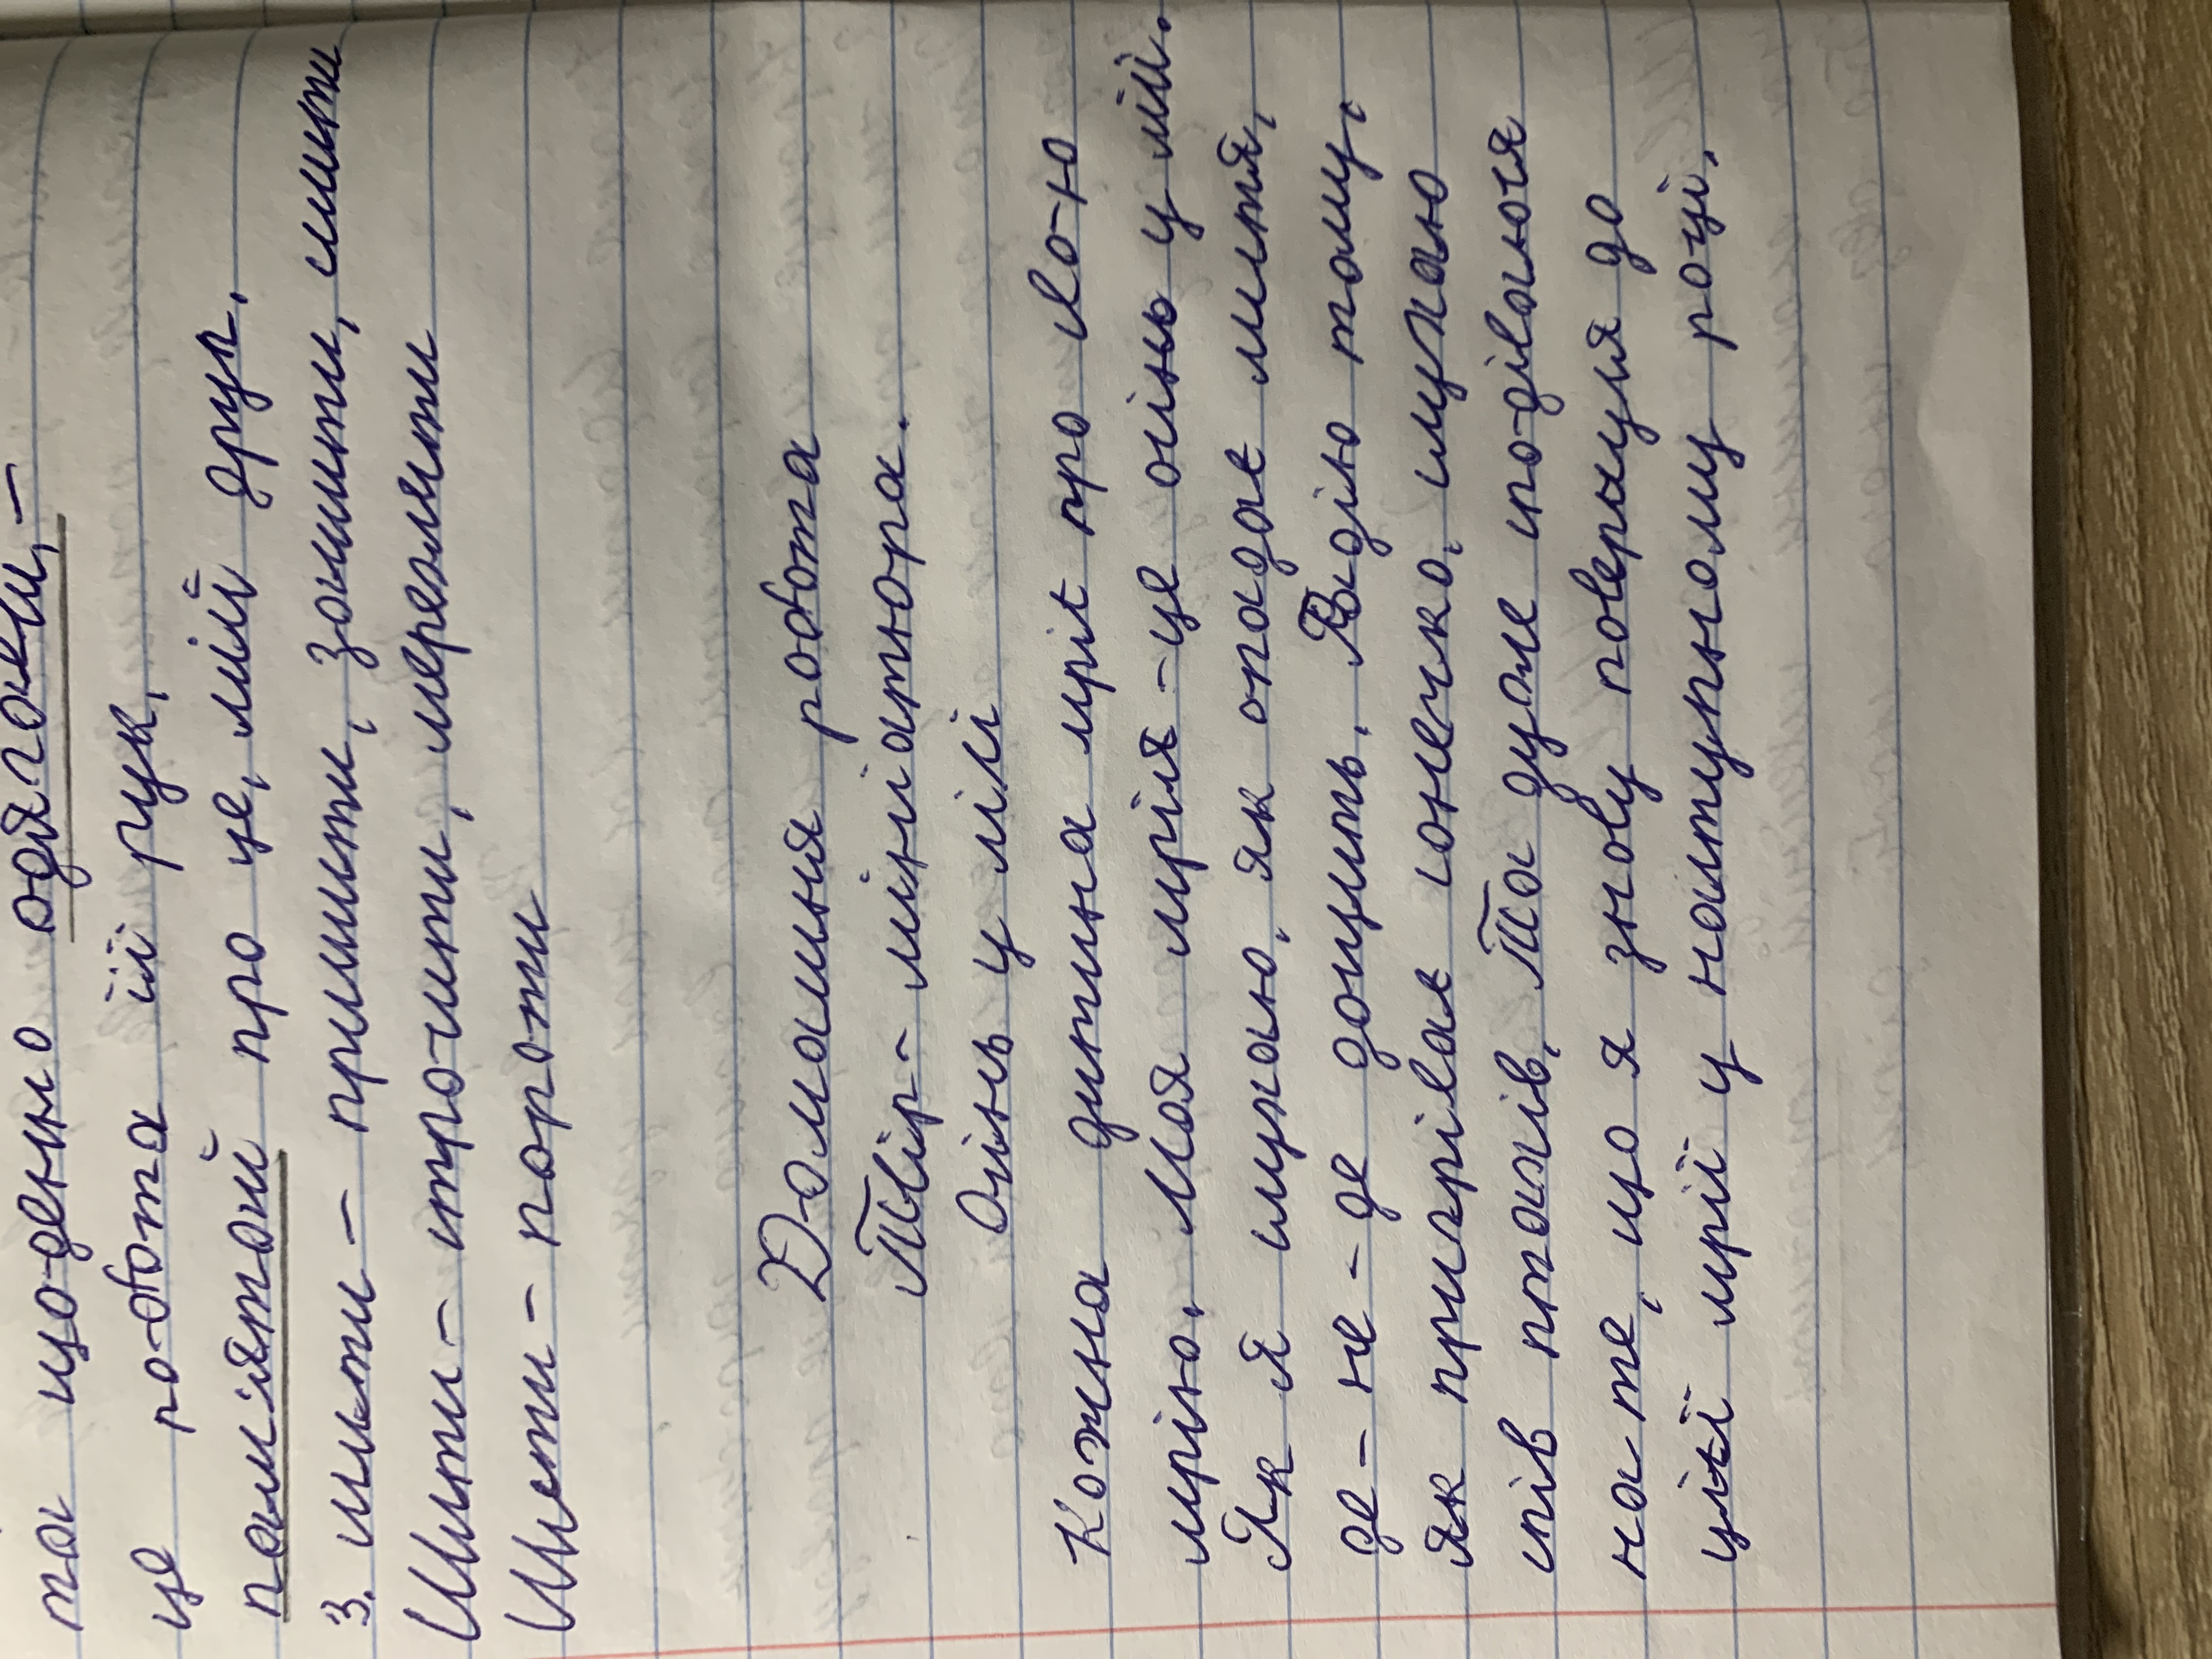 та щоденно одягаєш, –
це робота її рук,
пам'ятай про це, мій друг.
3. шити – пришити, зашити, сшити
Шити – строчити, мережити
Шити – пороти
Домашня робота
Твір – мініатюра.
Осінь у лісі
Кожна дитина мріє про свою
мрію. Моя мрія – це осінь у лісі.
Як я шукаю, як опадає листя,
де – не – де дощить. Радію тому,
як пригріває сонечко, слухаю
спів птахів. Та дуже сподіваюся
на те, що я знову повернуся до
цієї мрії у наступному році.